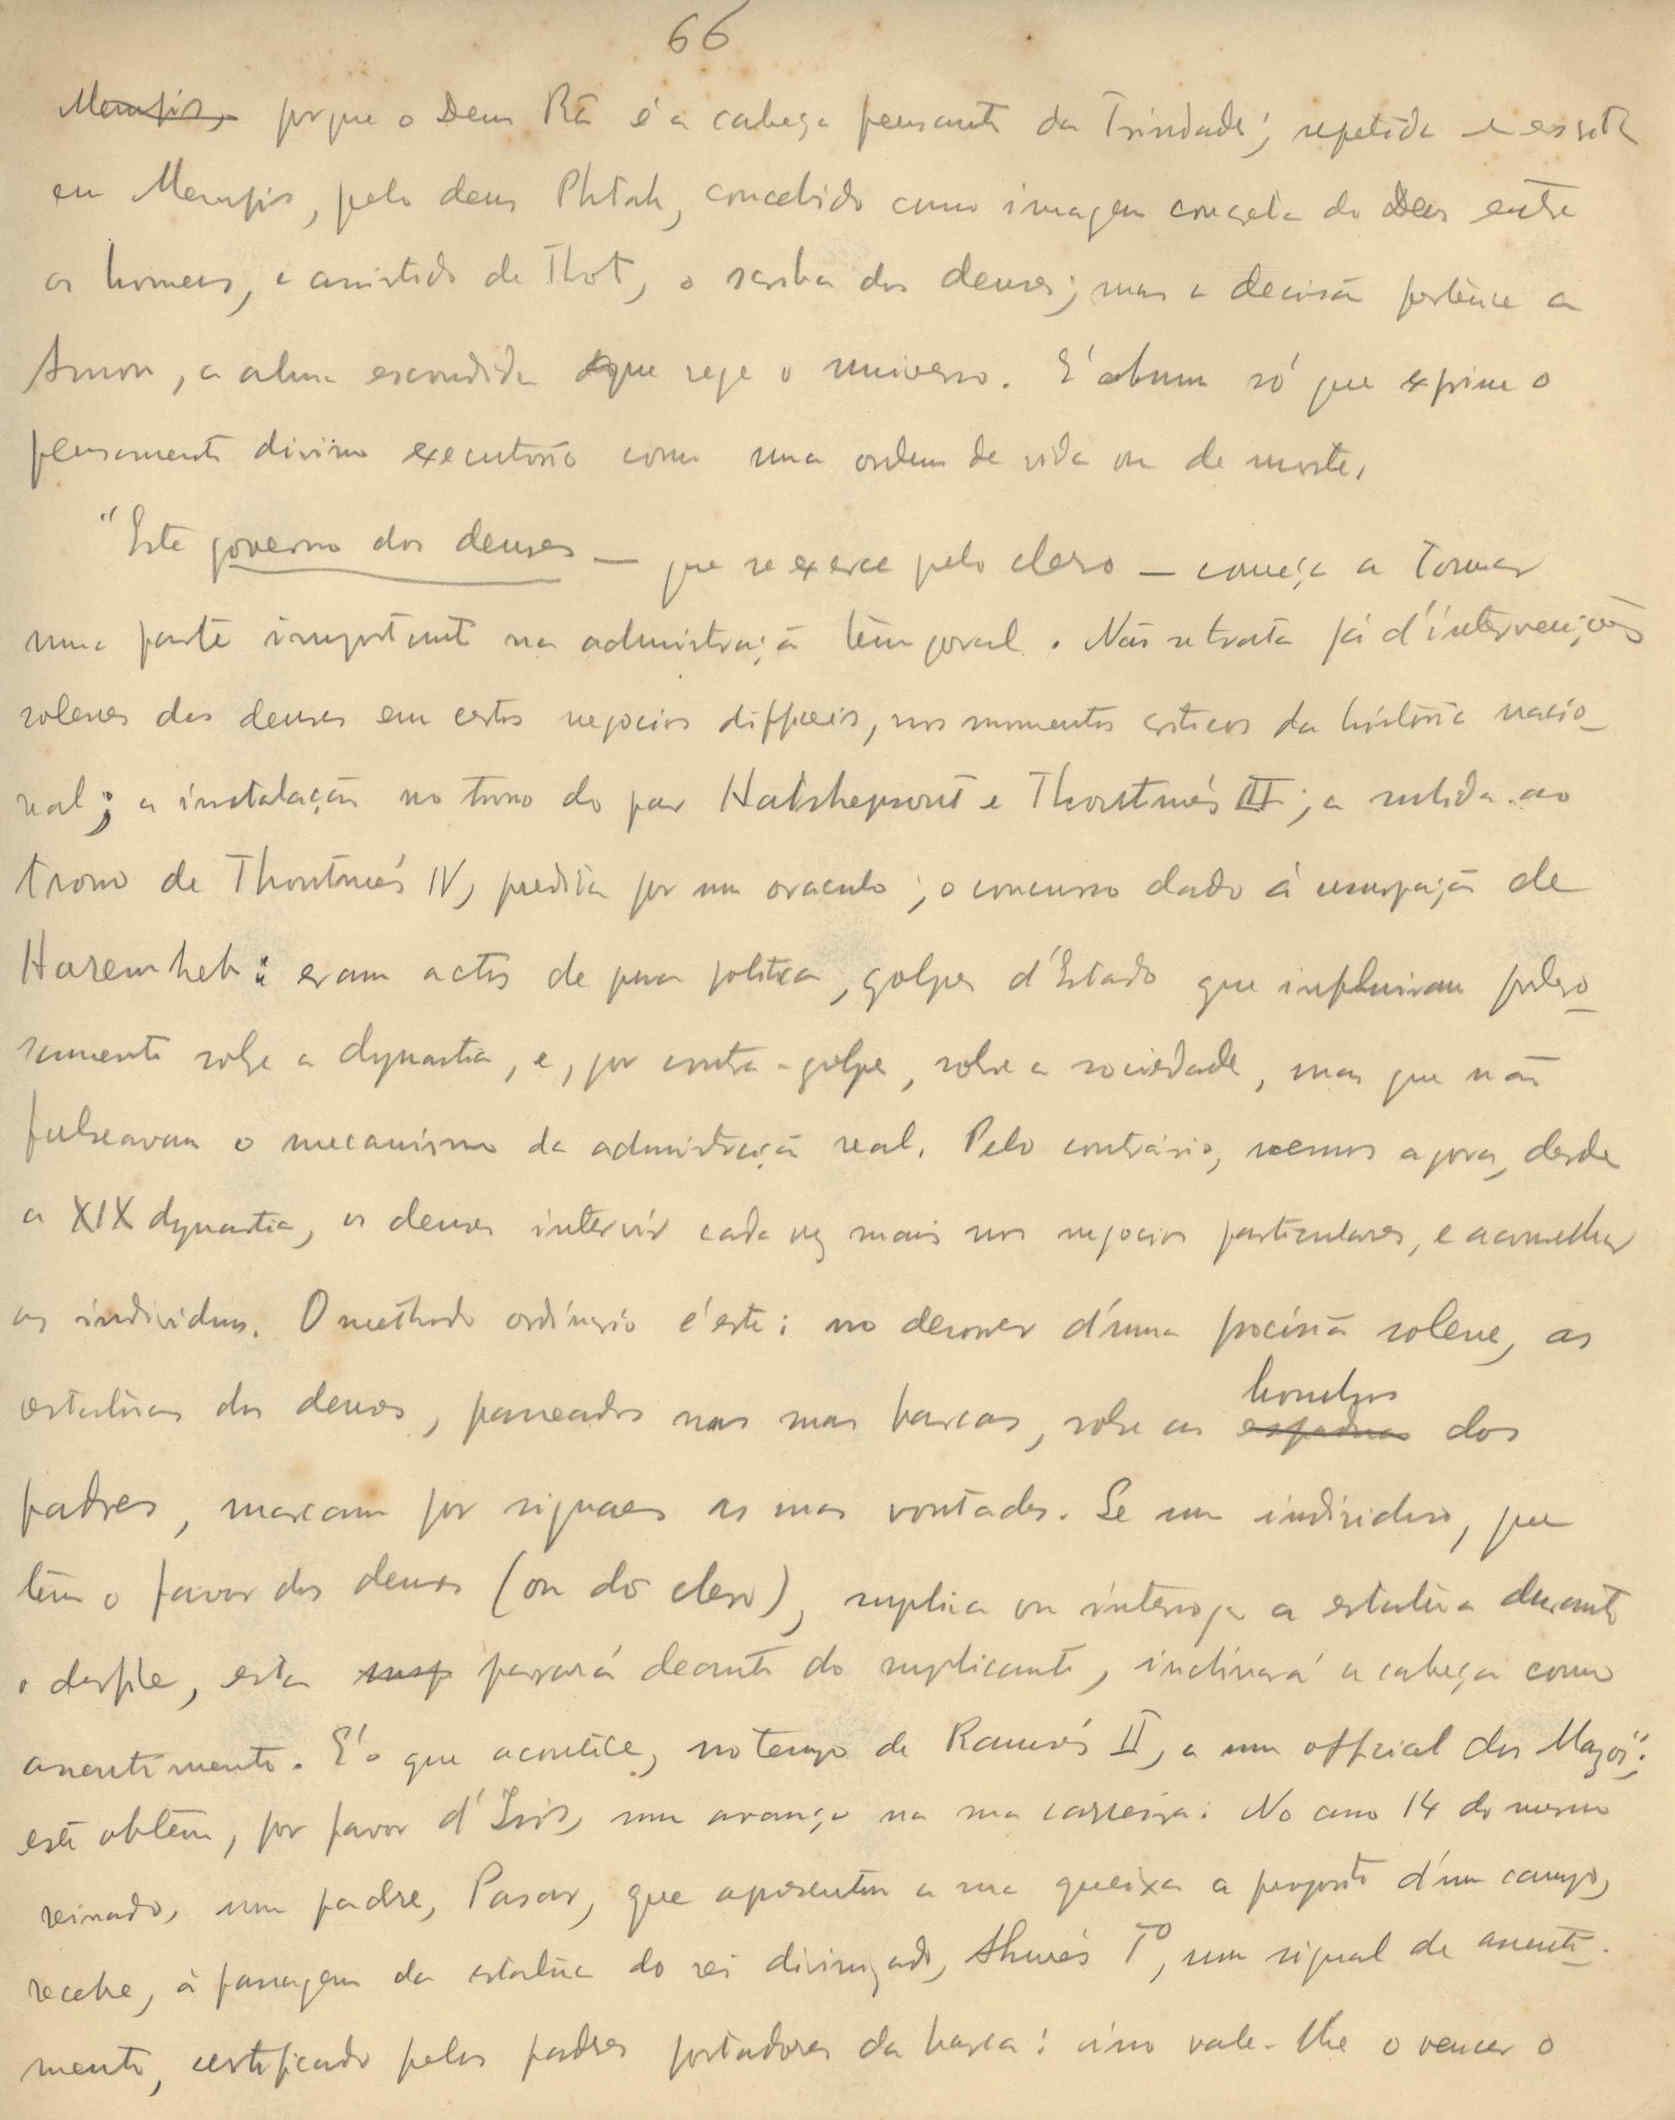 66
Memfis, porque o Deus Râ é a cabeça pensante da Trindade; repetida e escrita
em Memfis, pelo deus Phtah, concebido como imagem concreta do Deus entre
os homens, e assistido de Thot, o scriba dos deuses; mas a decisão pertence a
Amon, a alma escondida que rege o universo. É Amon só que exprime o
pensamento divino executorio como uma ordem de vida ou de morte.
"Este governo dos deuses — que se exerce pelo clero — começa a tomar
uma parte importante na administração temporal. Não se trata já d'intervenções
solenes dos deuses em certos negocios difficeis, nos momentos criticos da história nacio-
nal; a instalação no trono do par Hatshepsout e Thoutmés III; a subida ao
trono de Thoutmés IV, predita por um oraculo; o concurso dado á usurpação de
Haremheb: eram actos de pura politica, golpes d'Estado que influiram podero-
samente sobre a dynastia, e, por contra-golpe, sobre a sociedade, mas que não
falseavam o mecanismo da administração real. Pelo contrário, vemos agora, desde
a XIX dynastia, os deuses intervir cada vez mais nos negocios particulares, e aconselhar
os individuos. O methodo ordinário é este: no decorrer d'uma procissão solene, as
estatuas dos deuses, passeados nas suas barcas, sobre os espaduas hombros dos
padres, marcam por signaes as suas vontades. Se um individuo, que
tem o favor dos deuses (ou do clero), suplica ou interroga a estatua durante
o desfile, esta parará deante do suplicante, inclinará a cabeça como
assentimento. É o que acontece, no tempo de Ramsés II, a um official dos Mazoï;
este obtem, por favor d'Isis, um avanço na sua carreira. No ano 14 do mesmo
reinado, um padre, Pasar, que apresenta a sua queixa a proposito d'um campo,
recebe, á passagem da estatua do rei divinizado, Ahmés Iº, um signal de assenti-
mento, certificado pelos padres portadores da barca: isso vale-lhe o vencer o